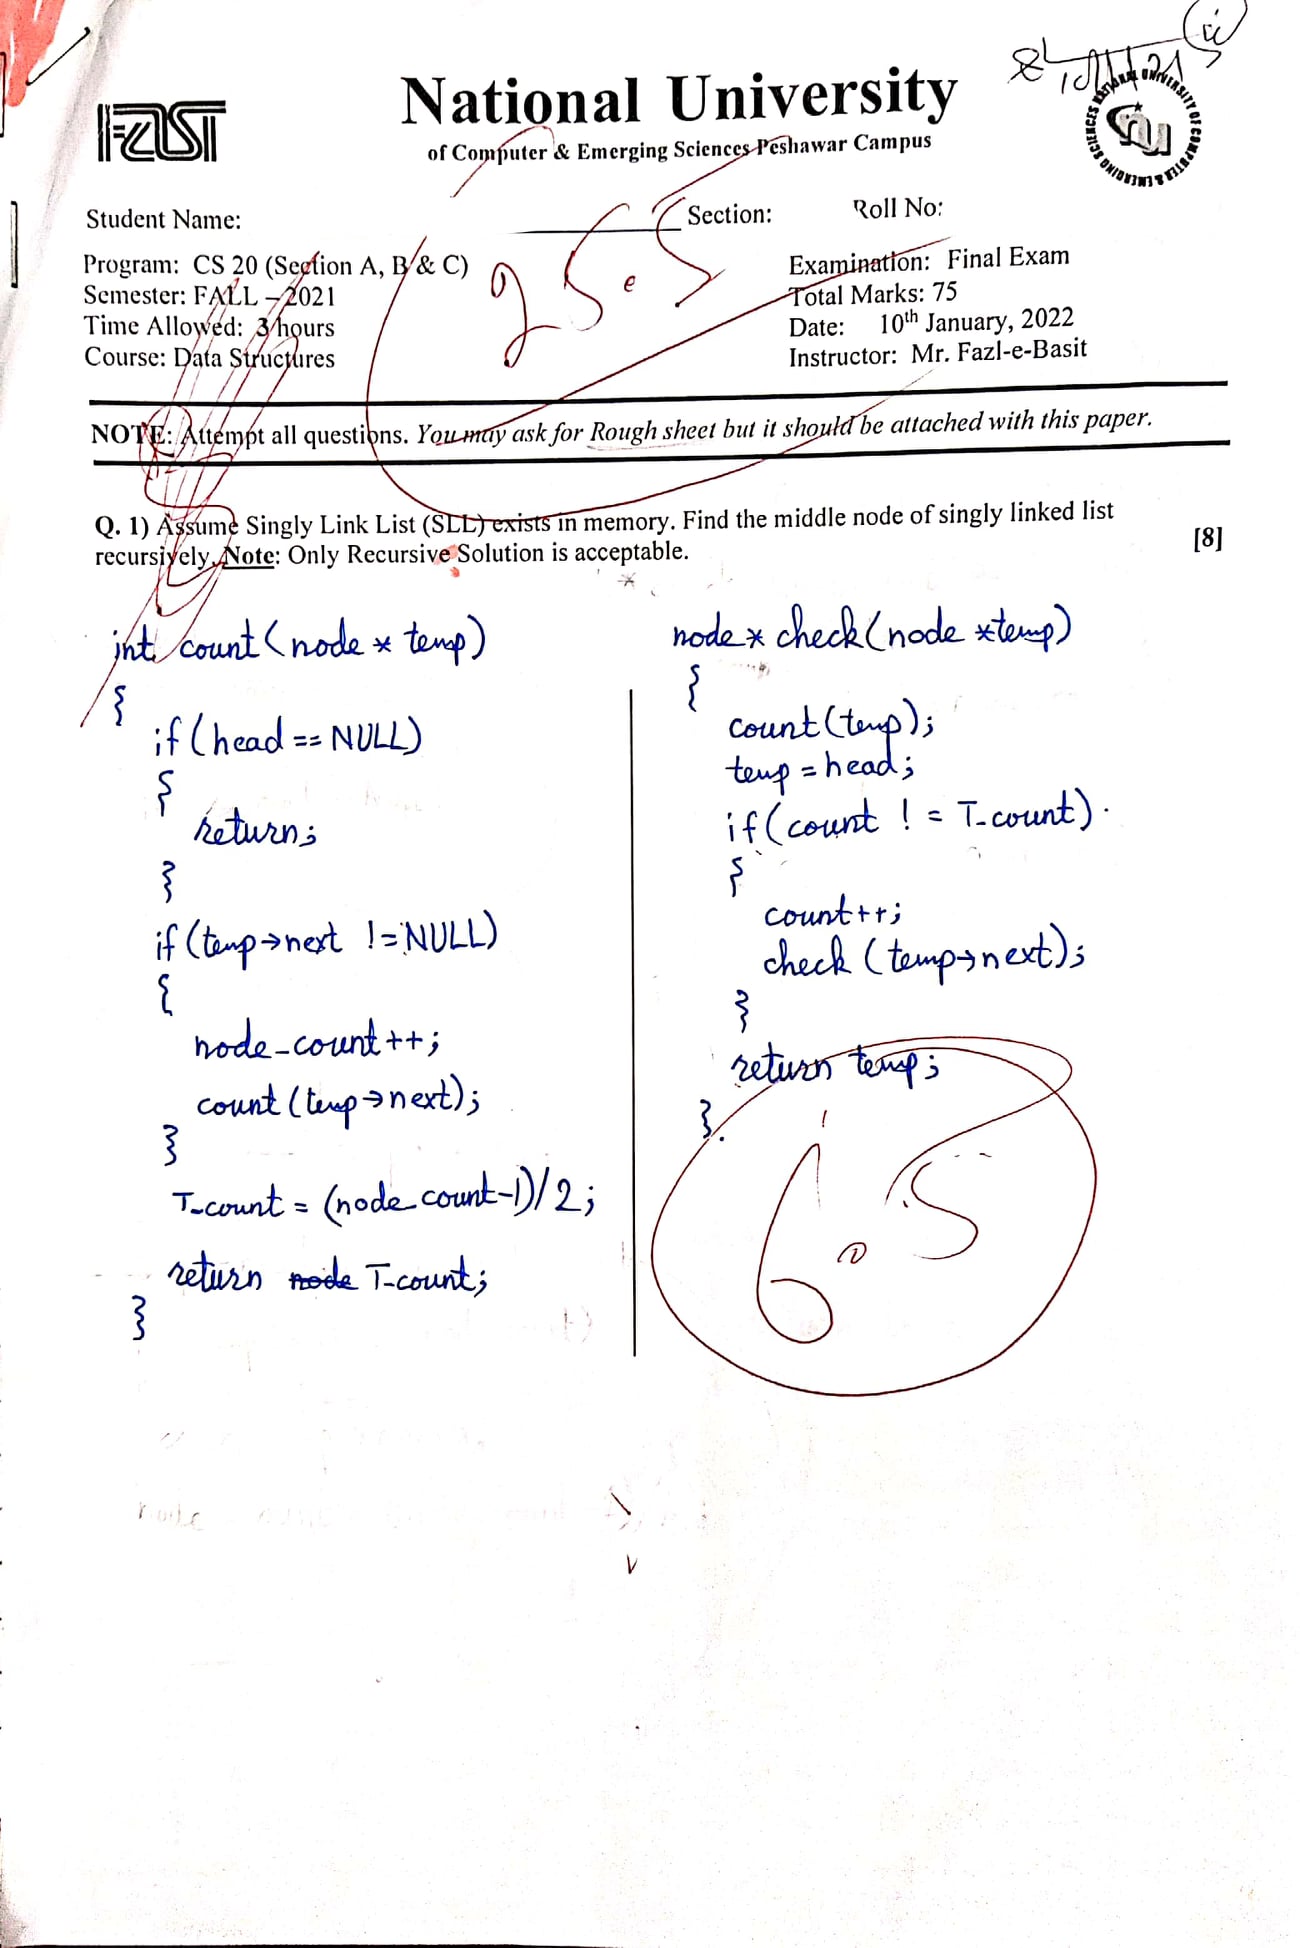 FAST
National University
of Computer & Emerging Sciences Peshawar Campus
NATIONAL UNIVERSITY OF COMPUTER & EMERGING SCIENCES
Student Name:
Section:
Roll No:
25.5
Program: CS 20 (Section A, B & C)
Semester: FALL – 2021
Time Allowed: 3 hours
Course: Data Structures
Examination: Final Exam
Total Marks: 75
Date: 10th January, 2022
Instructor: Mr. Fazl-e-Basit
NOTE: Attempt all questions. You may ask for Rough sheet but it should be attached with this paper.
Q. 1) Assume Singly Link List (SLL) exists in memory. Find the middle node of singly linked list
recursively. Note: Only Recursive Solution is acceptable.
[8]
int count(node * temp)
{
if(head == NULL)
{
return;
}
if(temp→next != NULL)
{
node-count++;
count(temp→next);
}
T-count = (node-count-1)/2;
return node T-count;
}
node* check(node *temp)
{
count(temp);
temp = head;
if(count != T-count)
{
count++;
check(temp→next);
}
return temp;
}
6.5